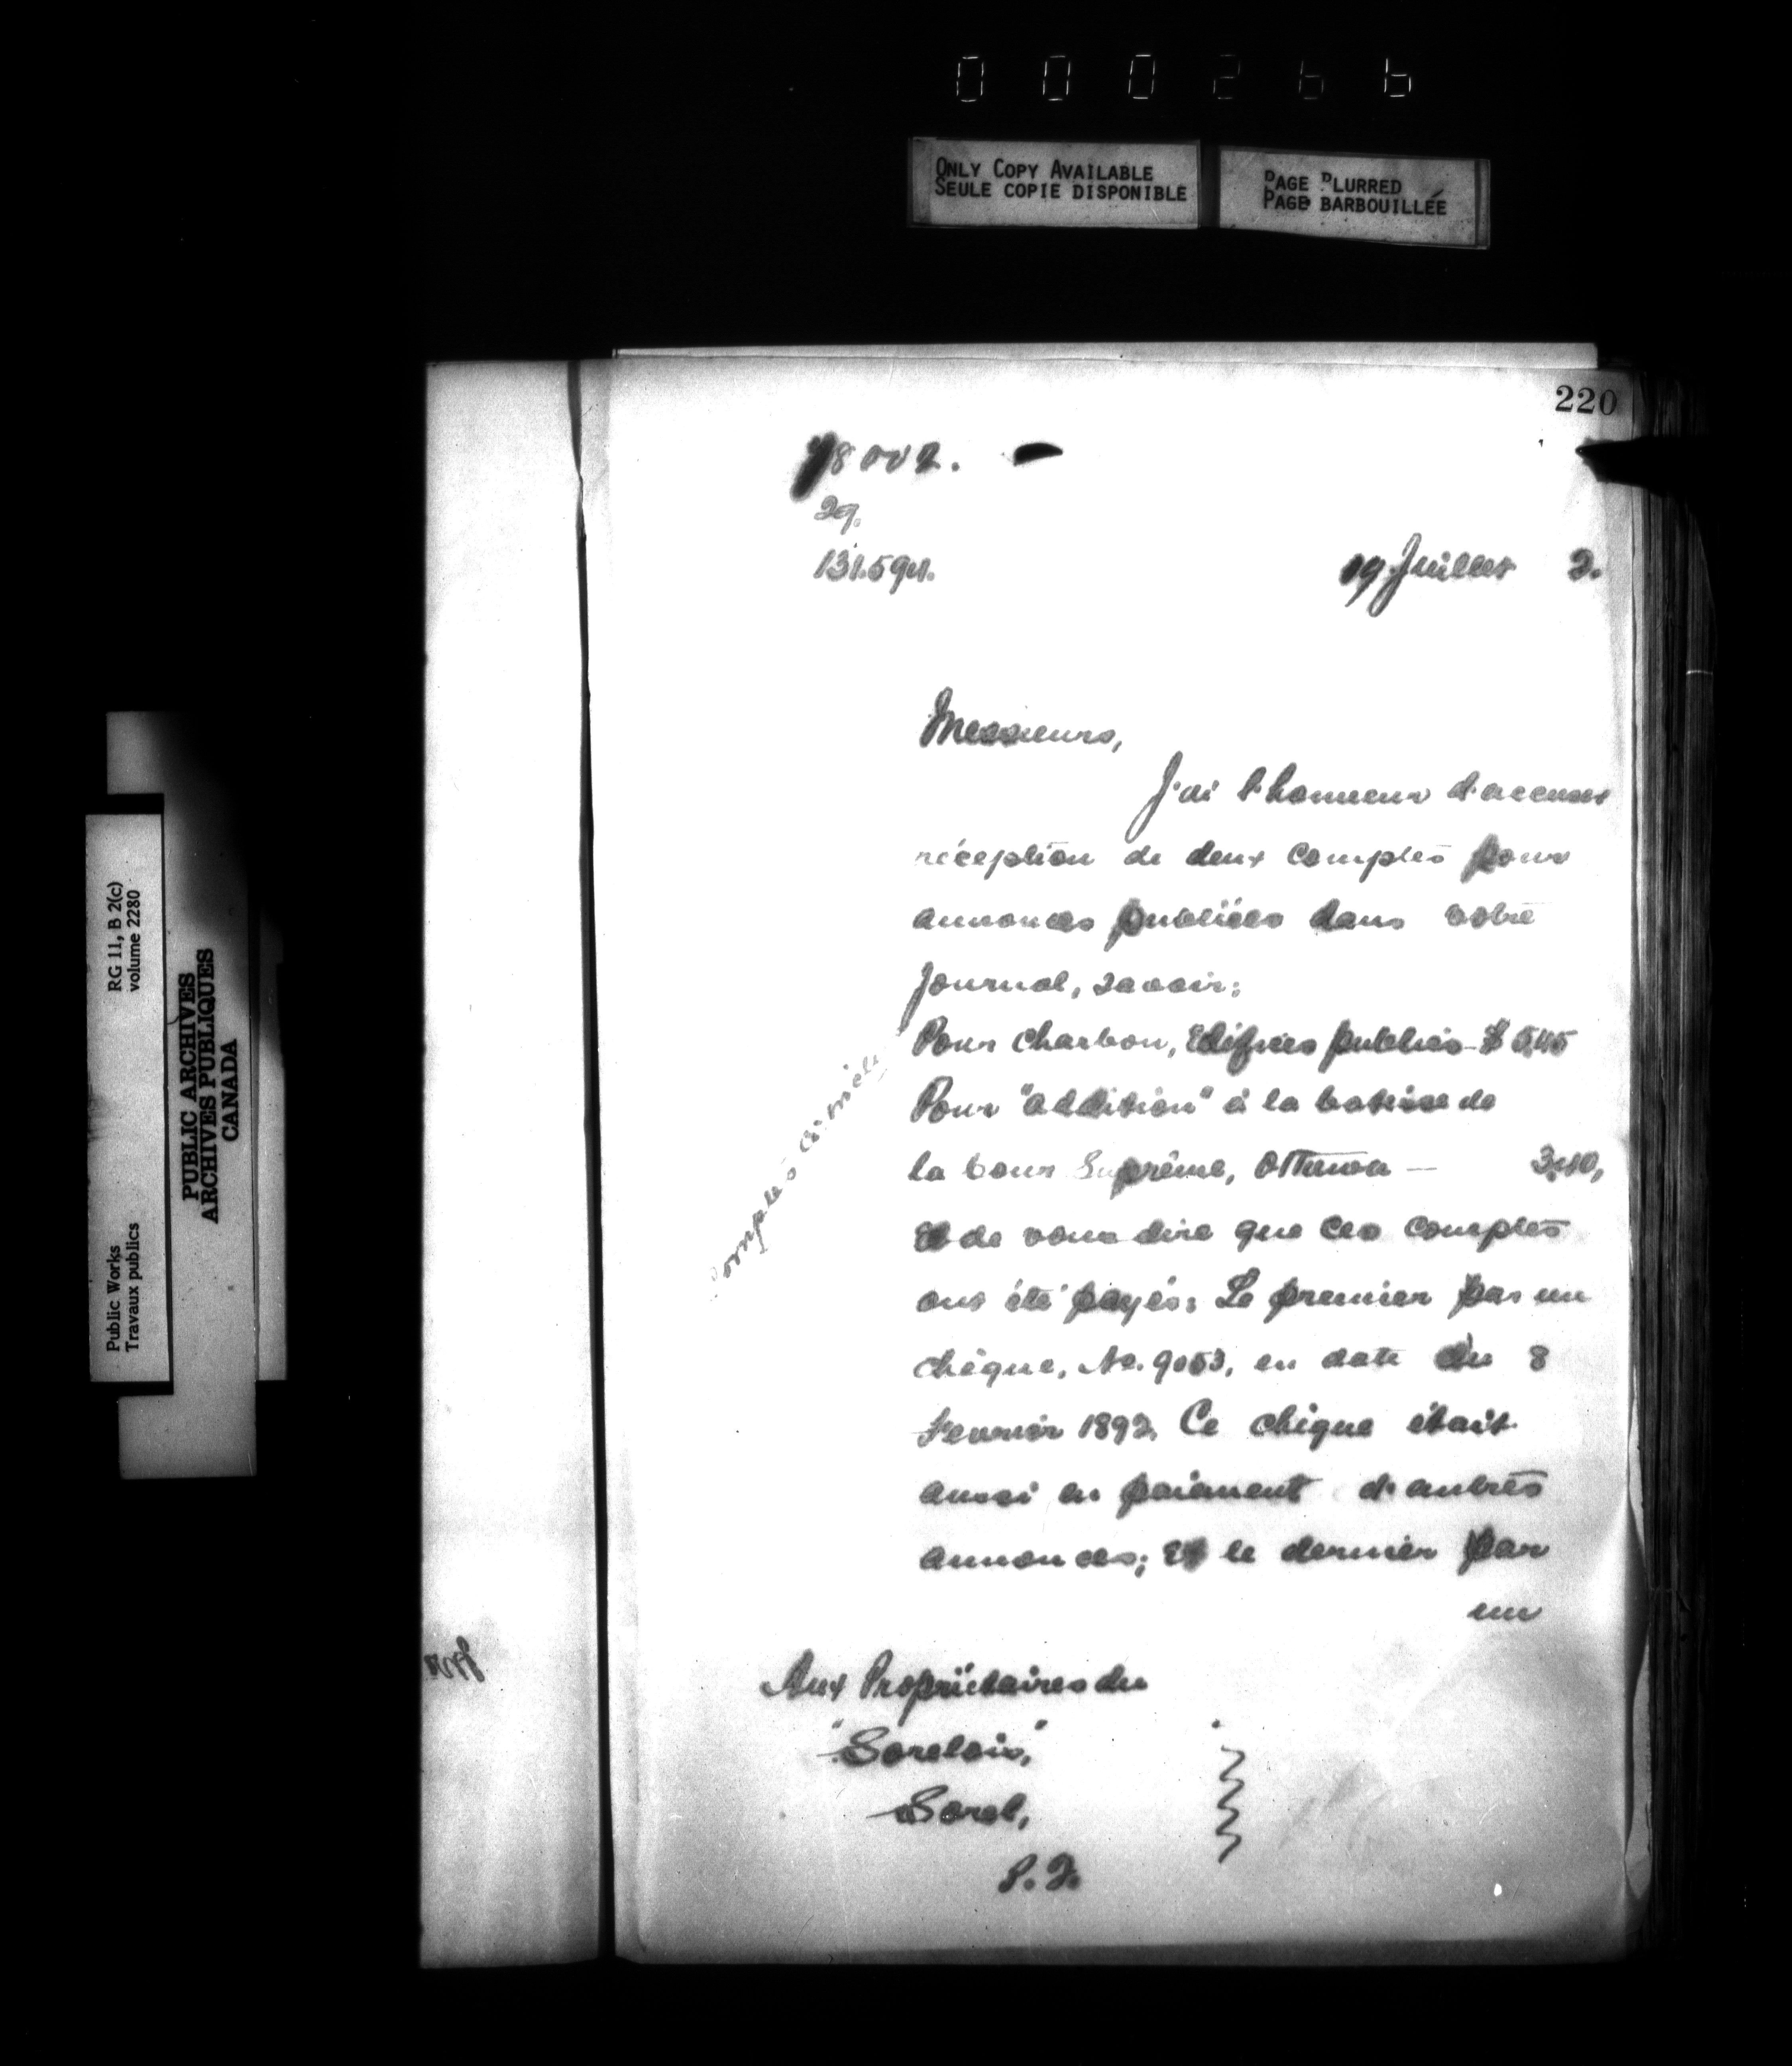 000266
ONLY COPY AVAILABLE
SEULE COPIE DISPONIBLE
PAGE BLURRED
PAGE BARBOUILLÉE
220
29.
19 Juillet 2.
Messieurs,
J'ai l'honneur d'accuser
réception de deux comptes pour
annonces publiées dans votre
journal, savoir:
Pour charbon, Edifices publics - $ 5.45
Pour "addition" à la batisse de
la Cour Suprême, Ottawa — 3.40,
Et de vous dire que ces comptes
ont été payés: Le premier par un
chèque, No. 9053, en date du 8
Fevrier 1892. Ce chèque était
aussi en paiement d'autres
annonces; Et le dernier par
un
Aux Propriétaires du
"Sorelois,"
Sorel,
P.Q.
comptes
Public Works
Travaux publics
RG 11, B 2(c)
volume 2280
PUBLIC ARCHIVES
ARCHIVES PUBLIQUES
CANADA